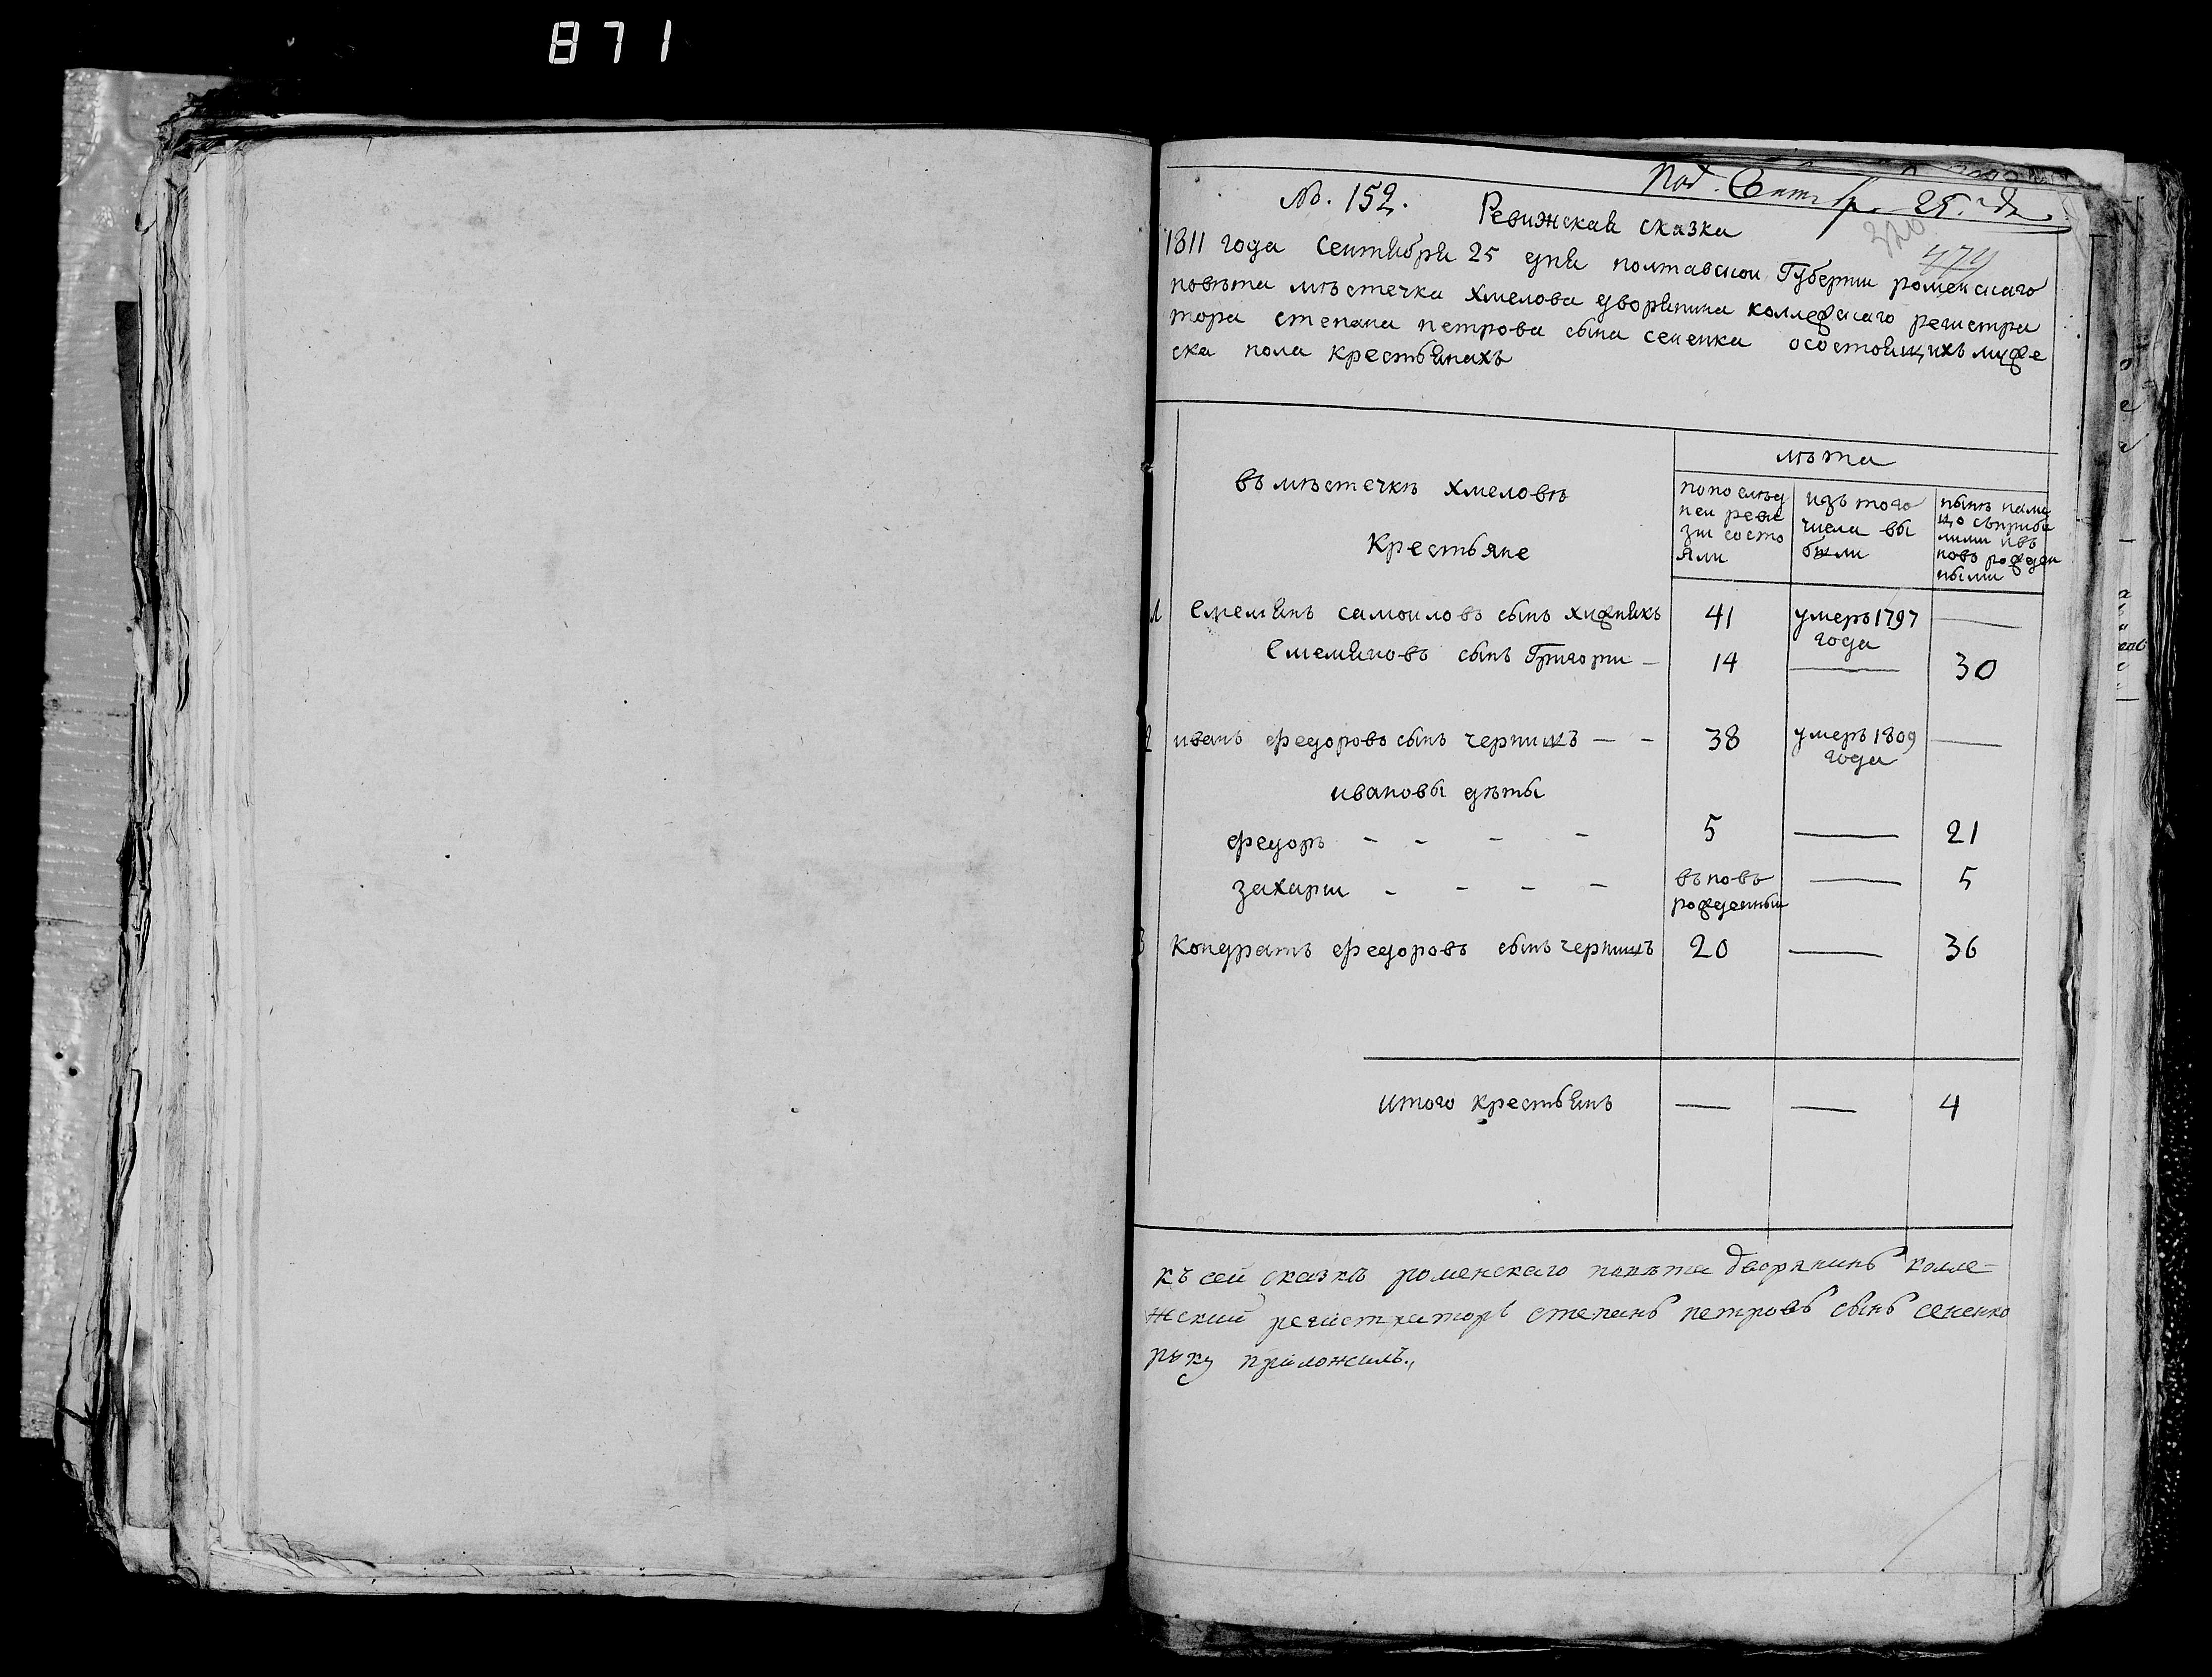 871
Под. Сентябр. 25. дн.
No. 152. Ревижская сказка
474
1811 года Сентября 25 дня полтавскои Губернии роменскаго
повѣта мѣстечка Хмелова дворянина коллежскаго регистра
тора степана петрова сына сененка осостоящихъ муже
ска пола крестьянахъ
лѣта
въ мѣстечкѣ Хмеловѣ
Крестьяне
попослѣд
неи реви
зии состо
яли
изъ того
числа вы
были
нынѣ нали
цо съприбы
лыми ивъ
новъ рожден
ными
1 Емелянъ самоиловъ сынъ хижнякъ 41 умеръ 1797 года —
Емеляновъ сынъ Григории — 14 — 30
2 иванъ федоровъ сынъ чернишъ — — 38 умеръ 1809 года —
ивановы дѣты
федоръ - - - - 5 — 21
захарии - - - - въновъ рожденныи — 5
3 Кондратъ федоровъ сынъ чернишъ 20 — 36
итого крестьянъ — — 4
къ сей сказкѣ роменскаго повѣта дворянинъ колле-
жский регистраторъ степанъ петровъ сынъ сененко
руку приложилъ.,